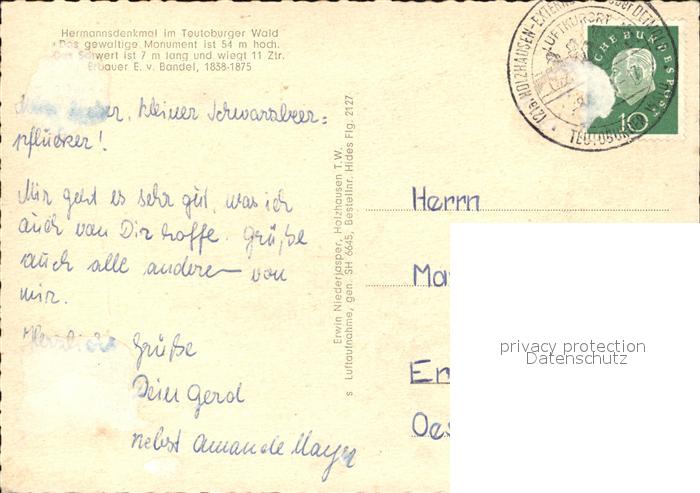 Hermannsdenkmal im Teutoburger Wald
Das gewaltige Monument ist 54 m hoch.
Das Schwert ist 7 m lang und wiegt 11 Ztr.
Erbauer E. v. Bandel, 1838-1875
kleiner Schwarzbeer=
pflücker!
Mir geht es sehr gut, was ich
auch von Dir hoffe. Grüße
auch alle anderen von
mir.
Herzliche
Grüße
Dein Gerd
nebst Amande Mayer
Erwin Niederjasper, Holzhausen T.W.
s Luftaufnahme, gen. SH 6645, Bestellnr. Hides Flg. 2127
(21a) HOLZHAUSEN-EXTERNS
über DETMOLD
LUFTKURORT
TEUTOBURGER WALD
CHE BUNDESPOST
10
Herrn
Ma
Er
Oes
privacy protection
Datenschutz